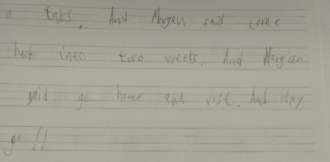 a taks. And Morgan said come
back into two weeks. And Morgan
said go home and rest. And they
go !!